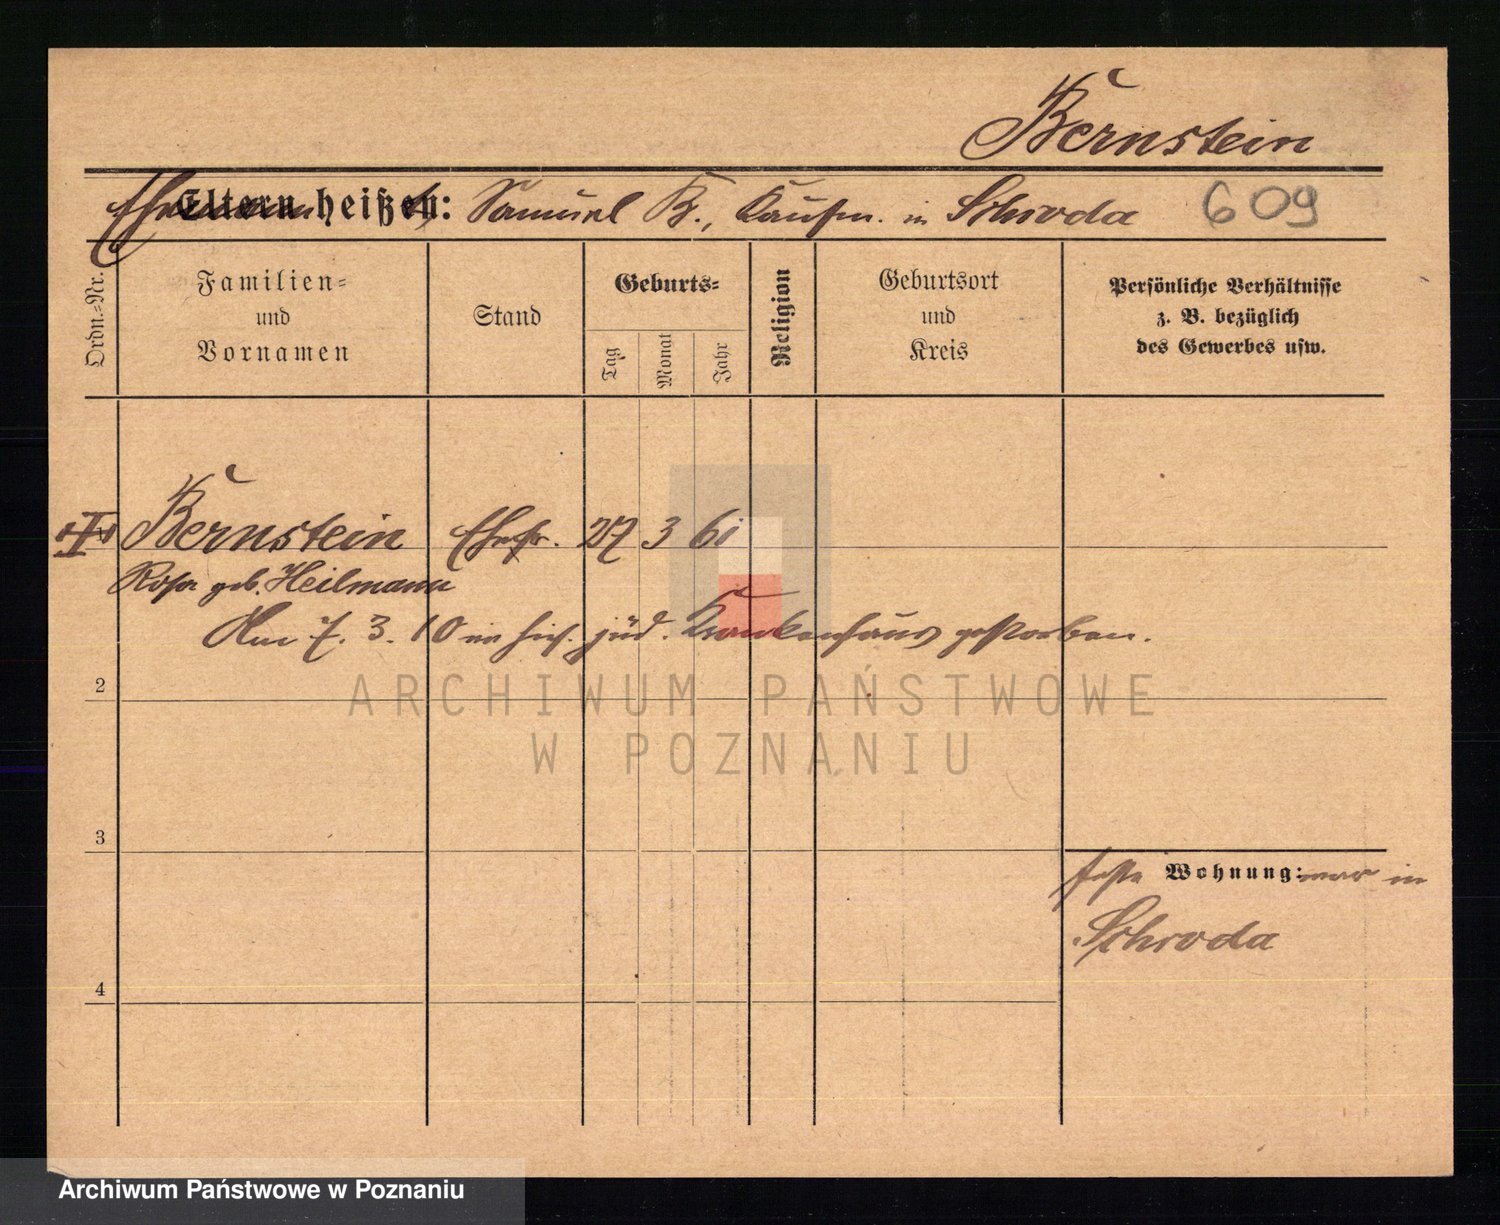 Bernstein
Ehemann heißt: Samuel B., Kaufm. in Schroda 609
Ordn.-Nr.
Familien-
und
Vornamen
Stand
Geburts-
Tag
Monat
Jahr
Religion
Geburtsort
und
Kreis
Persönliche Verhältnisse
z. B. bezüglich
des Gewerbes usw.
Bernstein Ehefr. 27 3 61
Rosa geb. Heilmann
Am 7. 3. 10 im hies. jüd. Krankenhaus gestorben.
2
3
4
feste Wohnung: war in
Schroda
ARCHIWUM PAŃSTWOWE
W POZNANIU
Archiwum Państwowe w Poznaniu